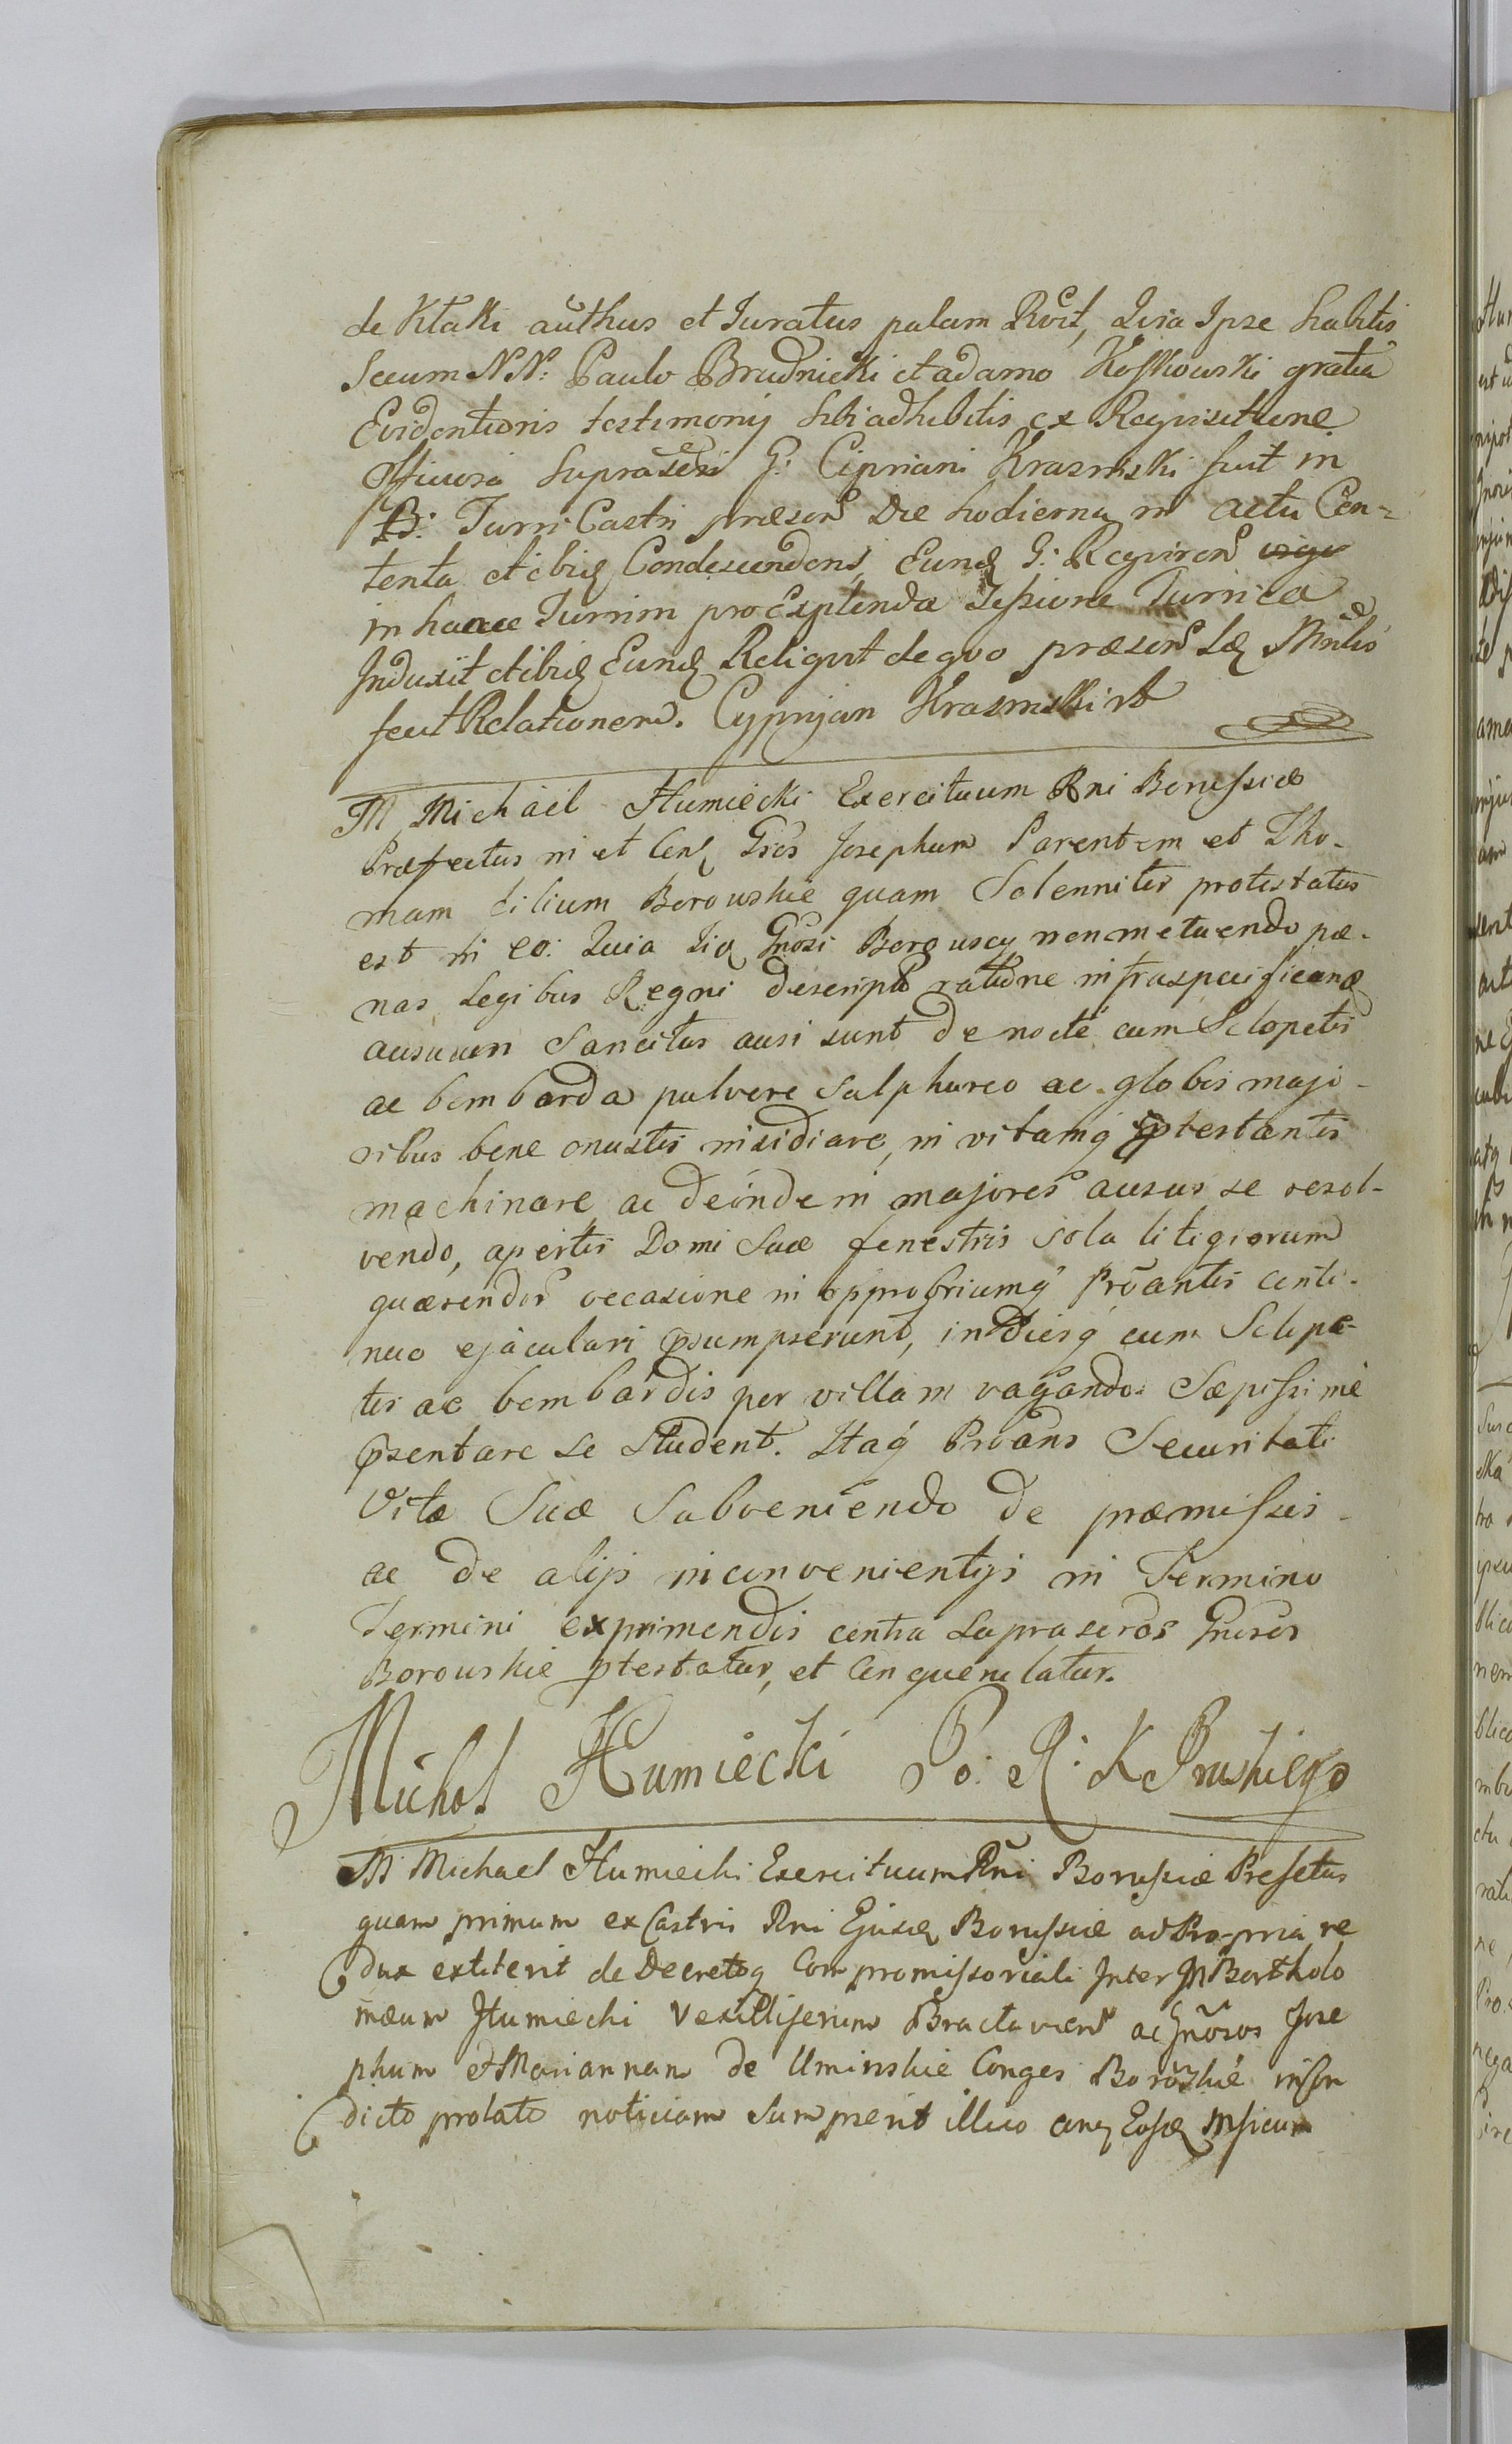 de Ktaki authus et Juratus palam Rvit, Quia Ipse habitis
Secum NN: Paulo Brudnicki et adamo Koskowski gratia
Evidentioris testimonij sibi adhibitis ex Requisitione
Officiosa supra G: Cipriani Krasinski fuit in
Turri Castri præsen Die hodierna in actu Con=
tenta et ibiq Condescendens, Eunq G: Requiren
in hance Turrim pro Explenda Sessione Turrica
Induxit et ibiq Eunq Reliquit de quo præsen
fecit Relationem. Cyprijan Krasinski
M. Michael Humiecki Exercituum Rni Borussiæ
Præfectus in et Josephum Parentem et Tho-
mam filium Borowskie quam Solenniter protestatus
est in eo: Quia Borouscy non metuendo pæ-
nas Legibus Regni descriptas ratione infraspecificand
ausuum Sancitas ausi sunt de nocte cum Sclopetis
ac bombarda pulvere sulphureo ac globis majo-
ribus bene onustis insidiare, in vitamq ptestantis
machinare ac deinde in majores ausus se resol-
vendo, apertis Domi Suæ fenestris sola litigiorum
quærendor occasione in opprobriumq Proantis conti-
nuo ejaculari psumpserunt, in diesq cum Sclope-
tis ac bombardis per villam vagando Sæpissime
psentare se student. Itaq Proans Securitati
Vitæ Suæ Subveniendo de præmissis
ac de alijs inconvenientijs in Termino
Termini exprimendis contra supra
Borowskie ptestatur, et Conquerulatur.
Michał Humiecki Po: R: K Pruskiego
M. Michael Humiecki Exercituum Rni Borussiæ Prefetus
quam primum ex Castris Rni Borussiæ ad Propria re
dux extiterit de Decretoq Compromissoriali Inter M Bartholo
mæum Humiecki Vexilliferum Bractavien ac Gnosos Jose
phum et Mariannam de Uminskie Conges Borowskie
dicto prolato noticiam sumpserit illico